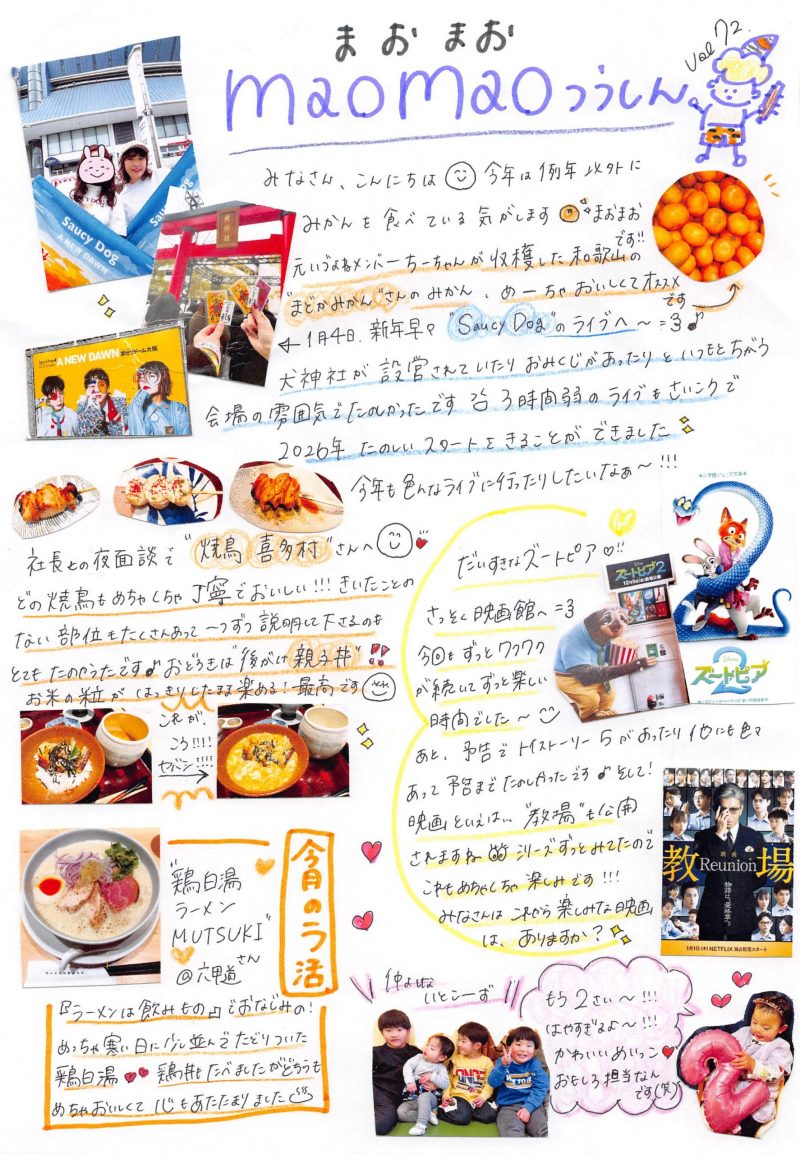 まおまお
maomaoつうしん
Vol 72.
みなさん、こんにちは 今年は例年以外に
みかんを食べている気がします まおまお
です!!
元いづよねメンバーちーちゃんが収穫した和歌山の
"まどかみかん"さんのみかん、めーちゃおいしくてオススメ
です
← 1月4日、新年早々 "Saucy Dog"のライブへ〜=3♪
犬神社が設営されていたりおみくじがあったりといつもとちがう
会場の雰囲気でたのしかったです 3時間弱のライブもさいこうで
2026年 たのしいスタートをきることができました
今年も色んなライブに行ったりしたいなぁ〜!!!
Saucy Dog
A NEW DAWN
Saucy Dog
A NEW DAWN
犬神社
A NEW DAWN
社長との夜面談で"焼鳥 喜多村"さんへ
どの焼鳥もめちゃくちゃ丁寧でおいしい!!!きいたことの
ない部位もたくさんあって一つずつ説明して下さるのも
とてもたのしかったです♪おどろきは"後がけ親子丼"!!
お米の粒がはっきりしたまま楽める!最高です
これが、
こう!!!
ヤバン!!!!
→
だいすきなズートピア♡!!
さっそく映画館へ=3
今回もずっとワクワク
が続いてずっと楽しい
時間でした〜
あと、予告でトイストーリー5があったり他にも色々
あって予告までたのしかったです♪そして!
映画といえば…"教場"も公開
されますね シリーズずっとみてたので
これもめちゃくちゃ楽しみです!!!
みなさんはこれから楽しみな映画
は、ありますか?
ズートピア2
12月5日(金)
Disney
ズートピア
2
教場
Reunion
1月1日(木)NETFLIX 独占配信スタート
今月のラ活
"鶏白湯
ラーメン
MUTSUKI"
さん
@六甲道
『ラーメンは飲みもの』でおなじみの!
めっちゃ寒い日に少し並んでたどりついた
鶏白湯 鶏丼もたべましたがどちらも
めちゃおいしくて心もあたたまりました
仲よしな
いとこーず
もう2さい〜!!!
はやすぎるよ〜!!!
かわいいめいっこ
おもしろ担当なん
です(笑)